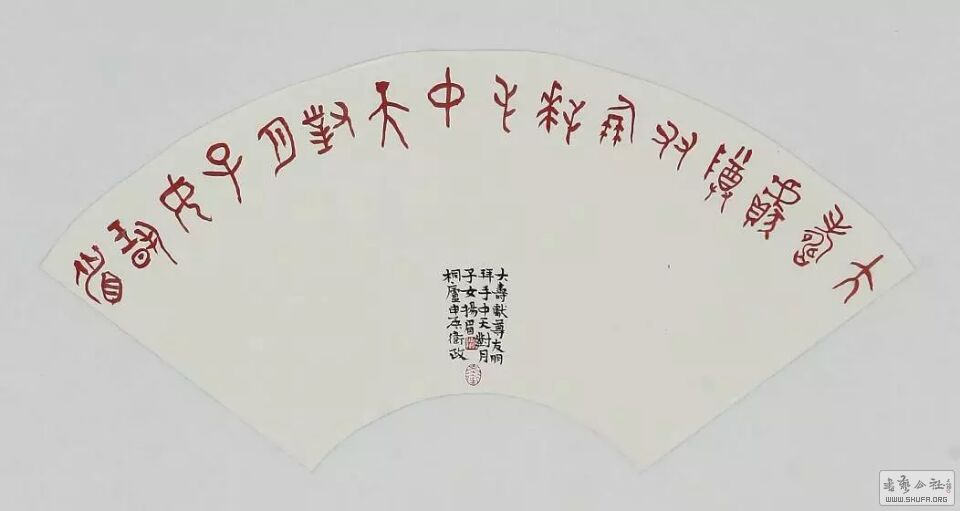 大壽獻尊友朋拜手中天對月子女揚眉
大壽獻尊友朋
拜手中天對月
子女揚眉
桐廬申屠衛政
書藝公社
WWW.SHUFA.ORG